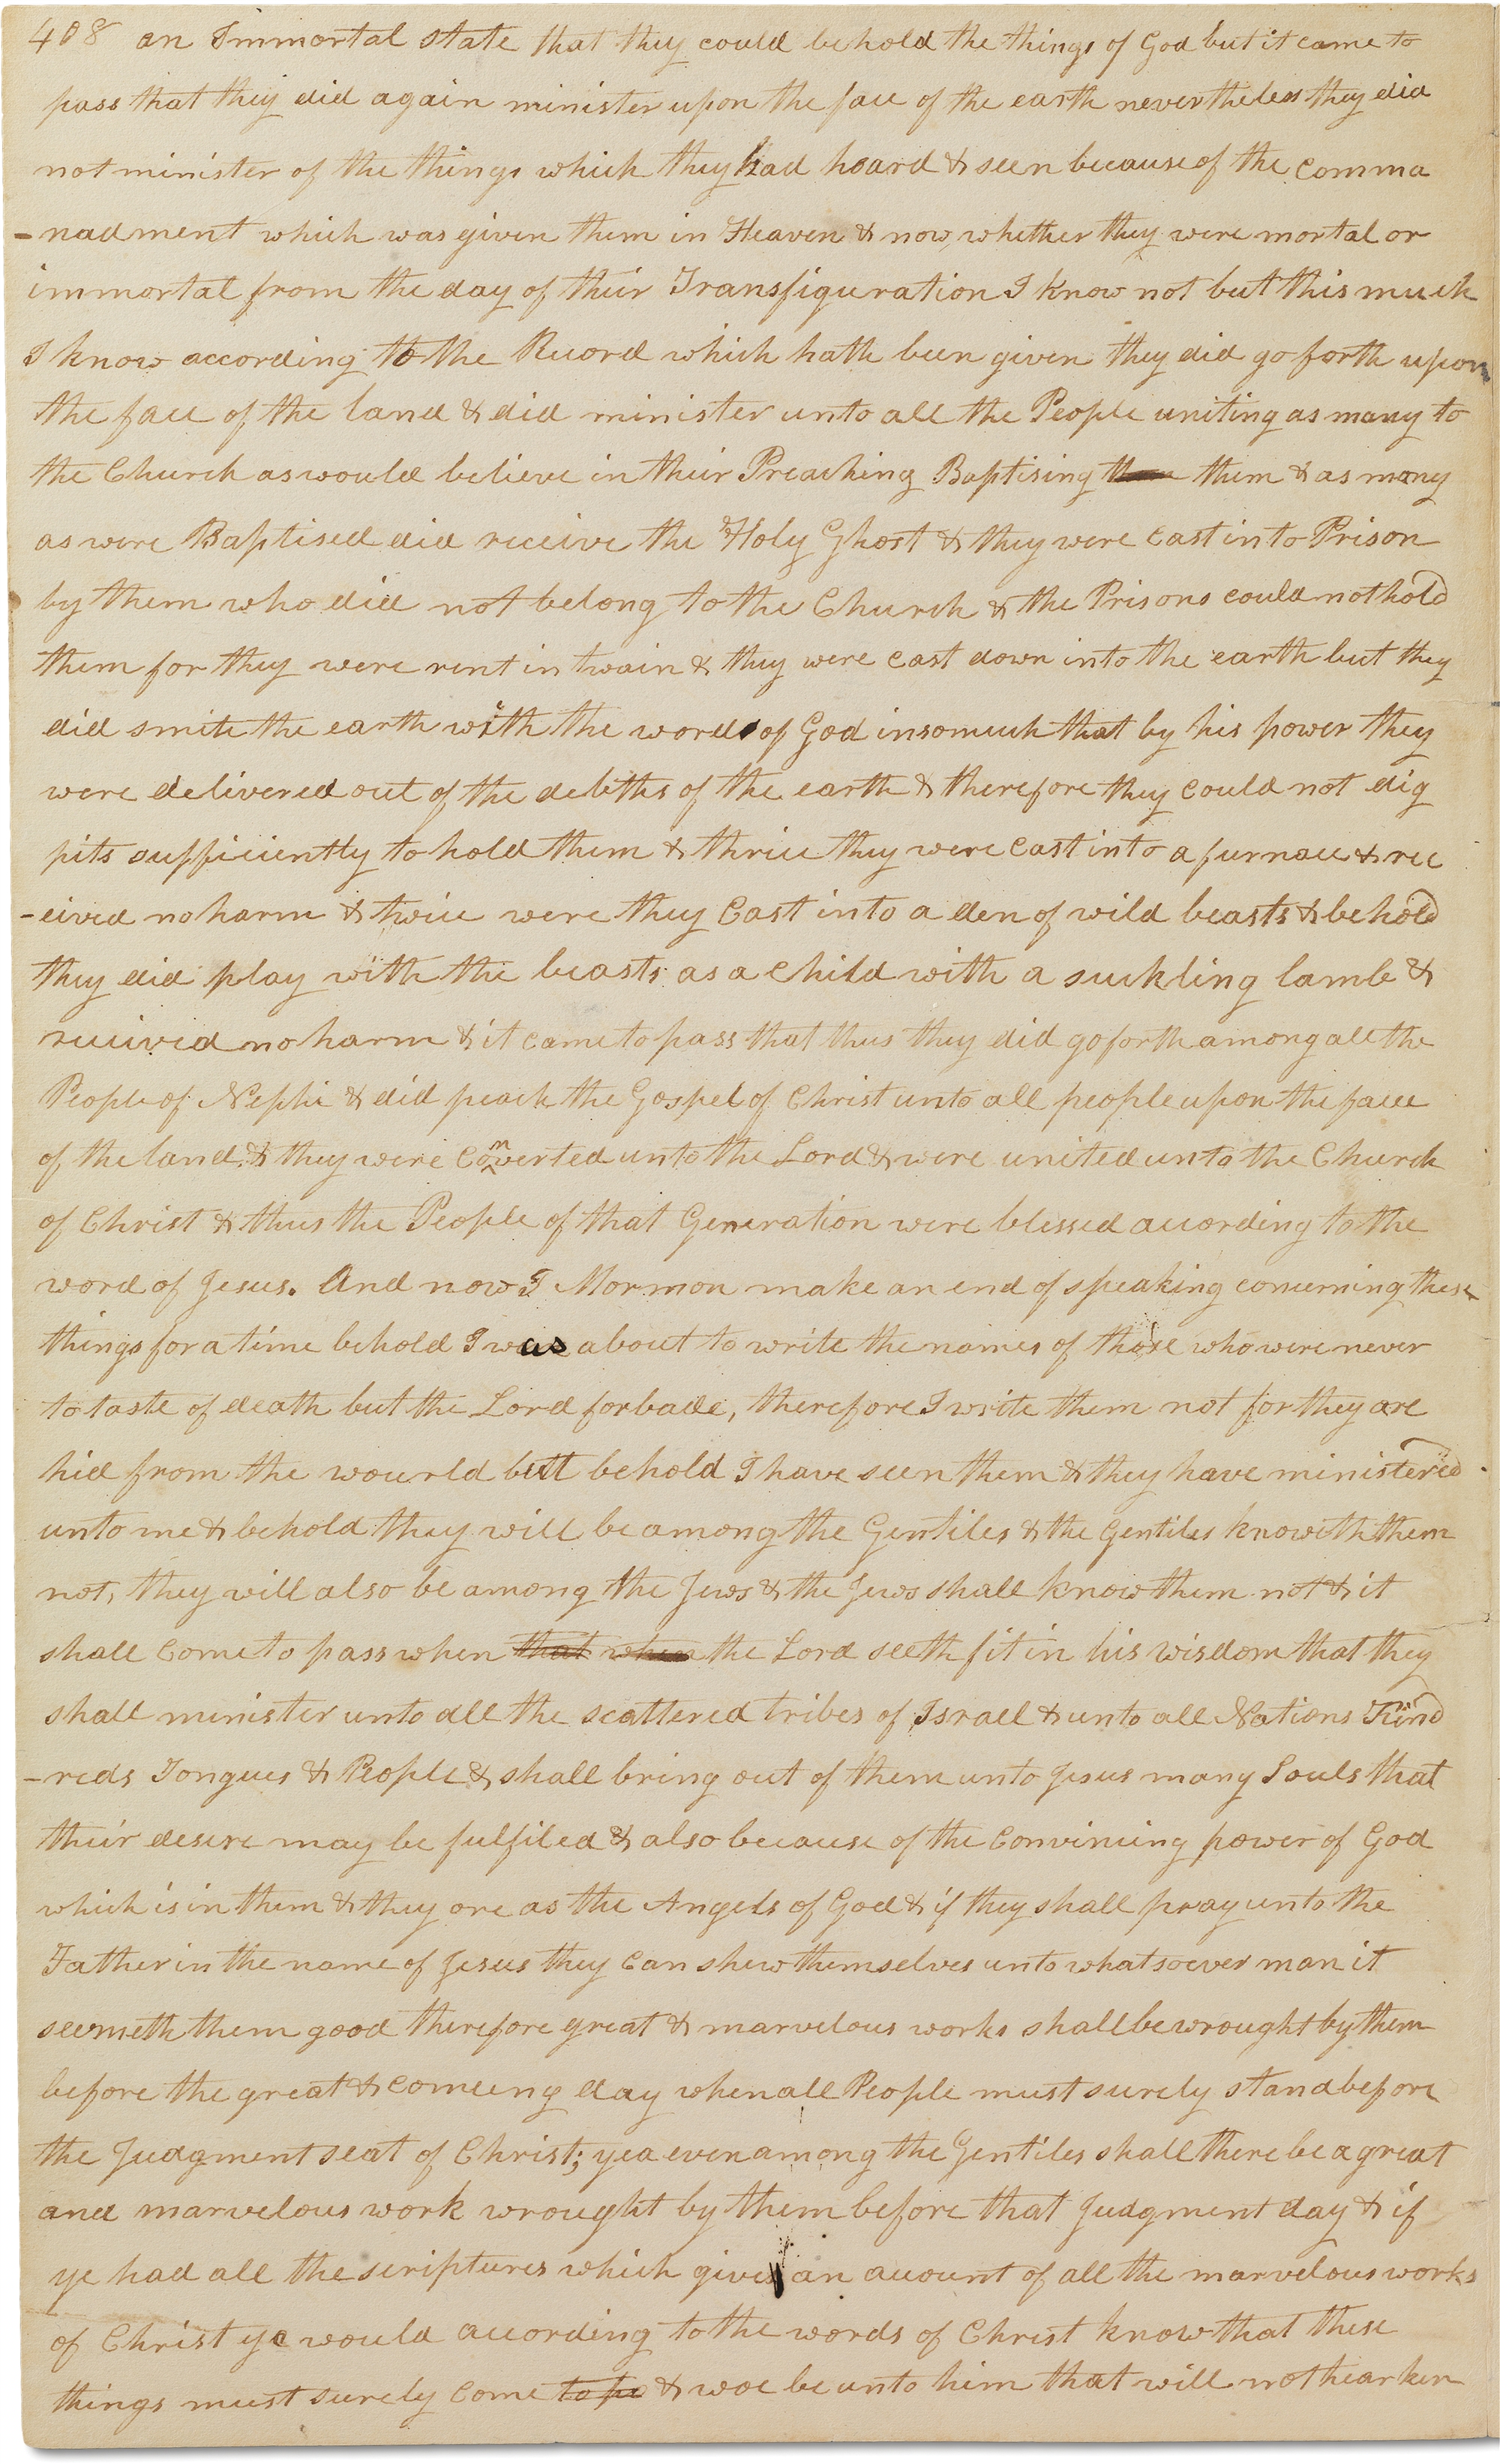 408 an Immortal state that they could behold the things of God but it came to
pass that they did again minister upon the face of the earth nevertheless they did
not minister of the things which they had heard & seen because of the comma
-nadment which was given them in Heaven & now whether they were mortal or
immortal from the day of their Transfiguration I know not but this much
I know according to the Record which hath been given they did go forth upon
the face of the land & did minister unto all the People uniting as many to
the Church as would believe in their Preaching Baptising them them & as many
as were Baptised did receive the Holy Ghost & they were cast into Prison
by them who did not belong to the Church & the Prisons could not hold
them for they were rent in twain & they were cast down into the earth but they
did smite the earth with the word of God insomuch that by his power they
were delivered out of the debths of the earth & therefore they could not dig
pits sufficiently to hold them & thrice they were cast into a furnace & rec
-eived no harm & twice were they Cast into a den of wild beasts & behold
they did play with the beasts as a child with a suckling lamb &
received no harm & it came to pass that thus they did go forth among all the
People of Nephi & did peach the Gospel of Christ unto all people upon the face
of the land & they were converted unto the Lord & were united unto the Church
of Christ & thus the People of that Generation were blessed according to the
word of Jesus. And now I Mormon make an end of speaking concerning these
things for a time behold I was about to write the names of those who were never
to taste of death but the Lord forbade, therefore I write them not for they are
hid from the wourld but behold I have seen them & they have ministered
unto me & behold they will be among the Gentiles & the Gentiles knoweth them
not, they will also be among the Jews & the Jews shall know them not & it
shall come to pass when that when the Lord seeth fit in his wisdom that they
shall minister unto all the scattered tribes of Israel & unto all Nations Kind
-reds Tongues & People & shall bring out of them unto Jesus many Souls that
their desire may be fulfiled & also because of the convincing power of God
which is in them & they are as the Angels of God & if they shall pray unto the
Father in the name of Jesus they can shew themselves unto whatsoever man it
seemeth them good therefore great & marvelous works shall be wrought by them
before the great & comeing day when all People must surely stand before
the Judgment seat of Christ; yea even among the Gentiles shall there be a great
and marvelous work wrought by them before that Judgment day & if
ye had all the scriptures which gives an account of all the marvelous works
of Christ ye would according to the words of Christ know that these
things must surely come to pa & woe be unto him that will not hearken